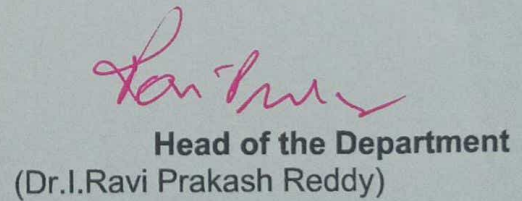 Head of the Department
(Dr.I.Ravi Prakash Reddy)